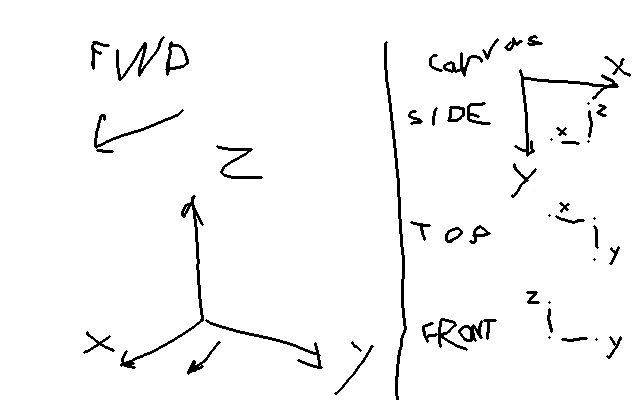 FWD
Z
X
Y
canvas
X
Y
SIDE
x
z
TOP
x
y
FRONT
z
y